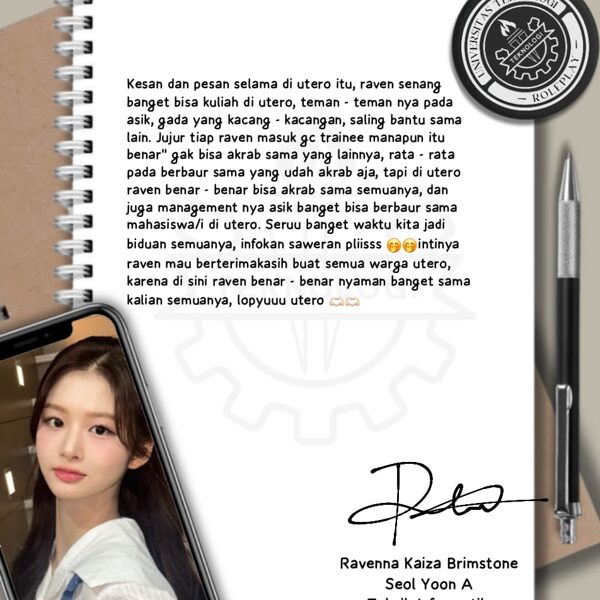 UNIVERSITAS TEKNOLOGI
TEKNOLOGI
— ROLEPLAY —
Kesan dan pesan selama di utero itu, raven senang
banget bisa kuliah di utero, teman - teman nya pada
asik, gada yang kacang - kacangan, saling bantu sama
lain. Jujur tiap raven masuk gc trainee manapun itu
benar" gak bisa akrab sama yang lainnya, rata - rata
pada berbaur sama yang udah akrab aja, tapi di utero
raven benar - benar bisa akrab sama semuanya, dan
juga management nya asik banget bisa berbaur sama
mahasiswa/i di utero. Seruu banget waktu kita jadi
biduan semuanya, infokan saweran pliisss 🤭🤭intinya
raven mau berterimakasih buat semua warga utero,
karena di sini raven benar - benar nyaman banget sama
kalian semuanya, lopyuuu utero 🫶🏻🫶🏻
Ravenna Kaiza Brimstone
Seol Yoon A